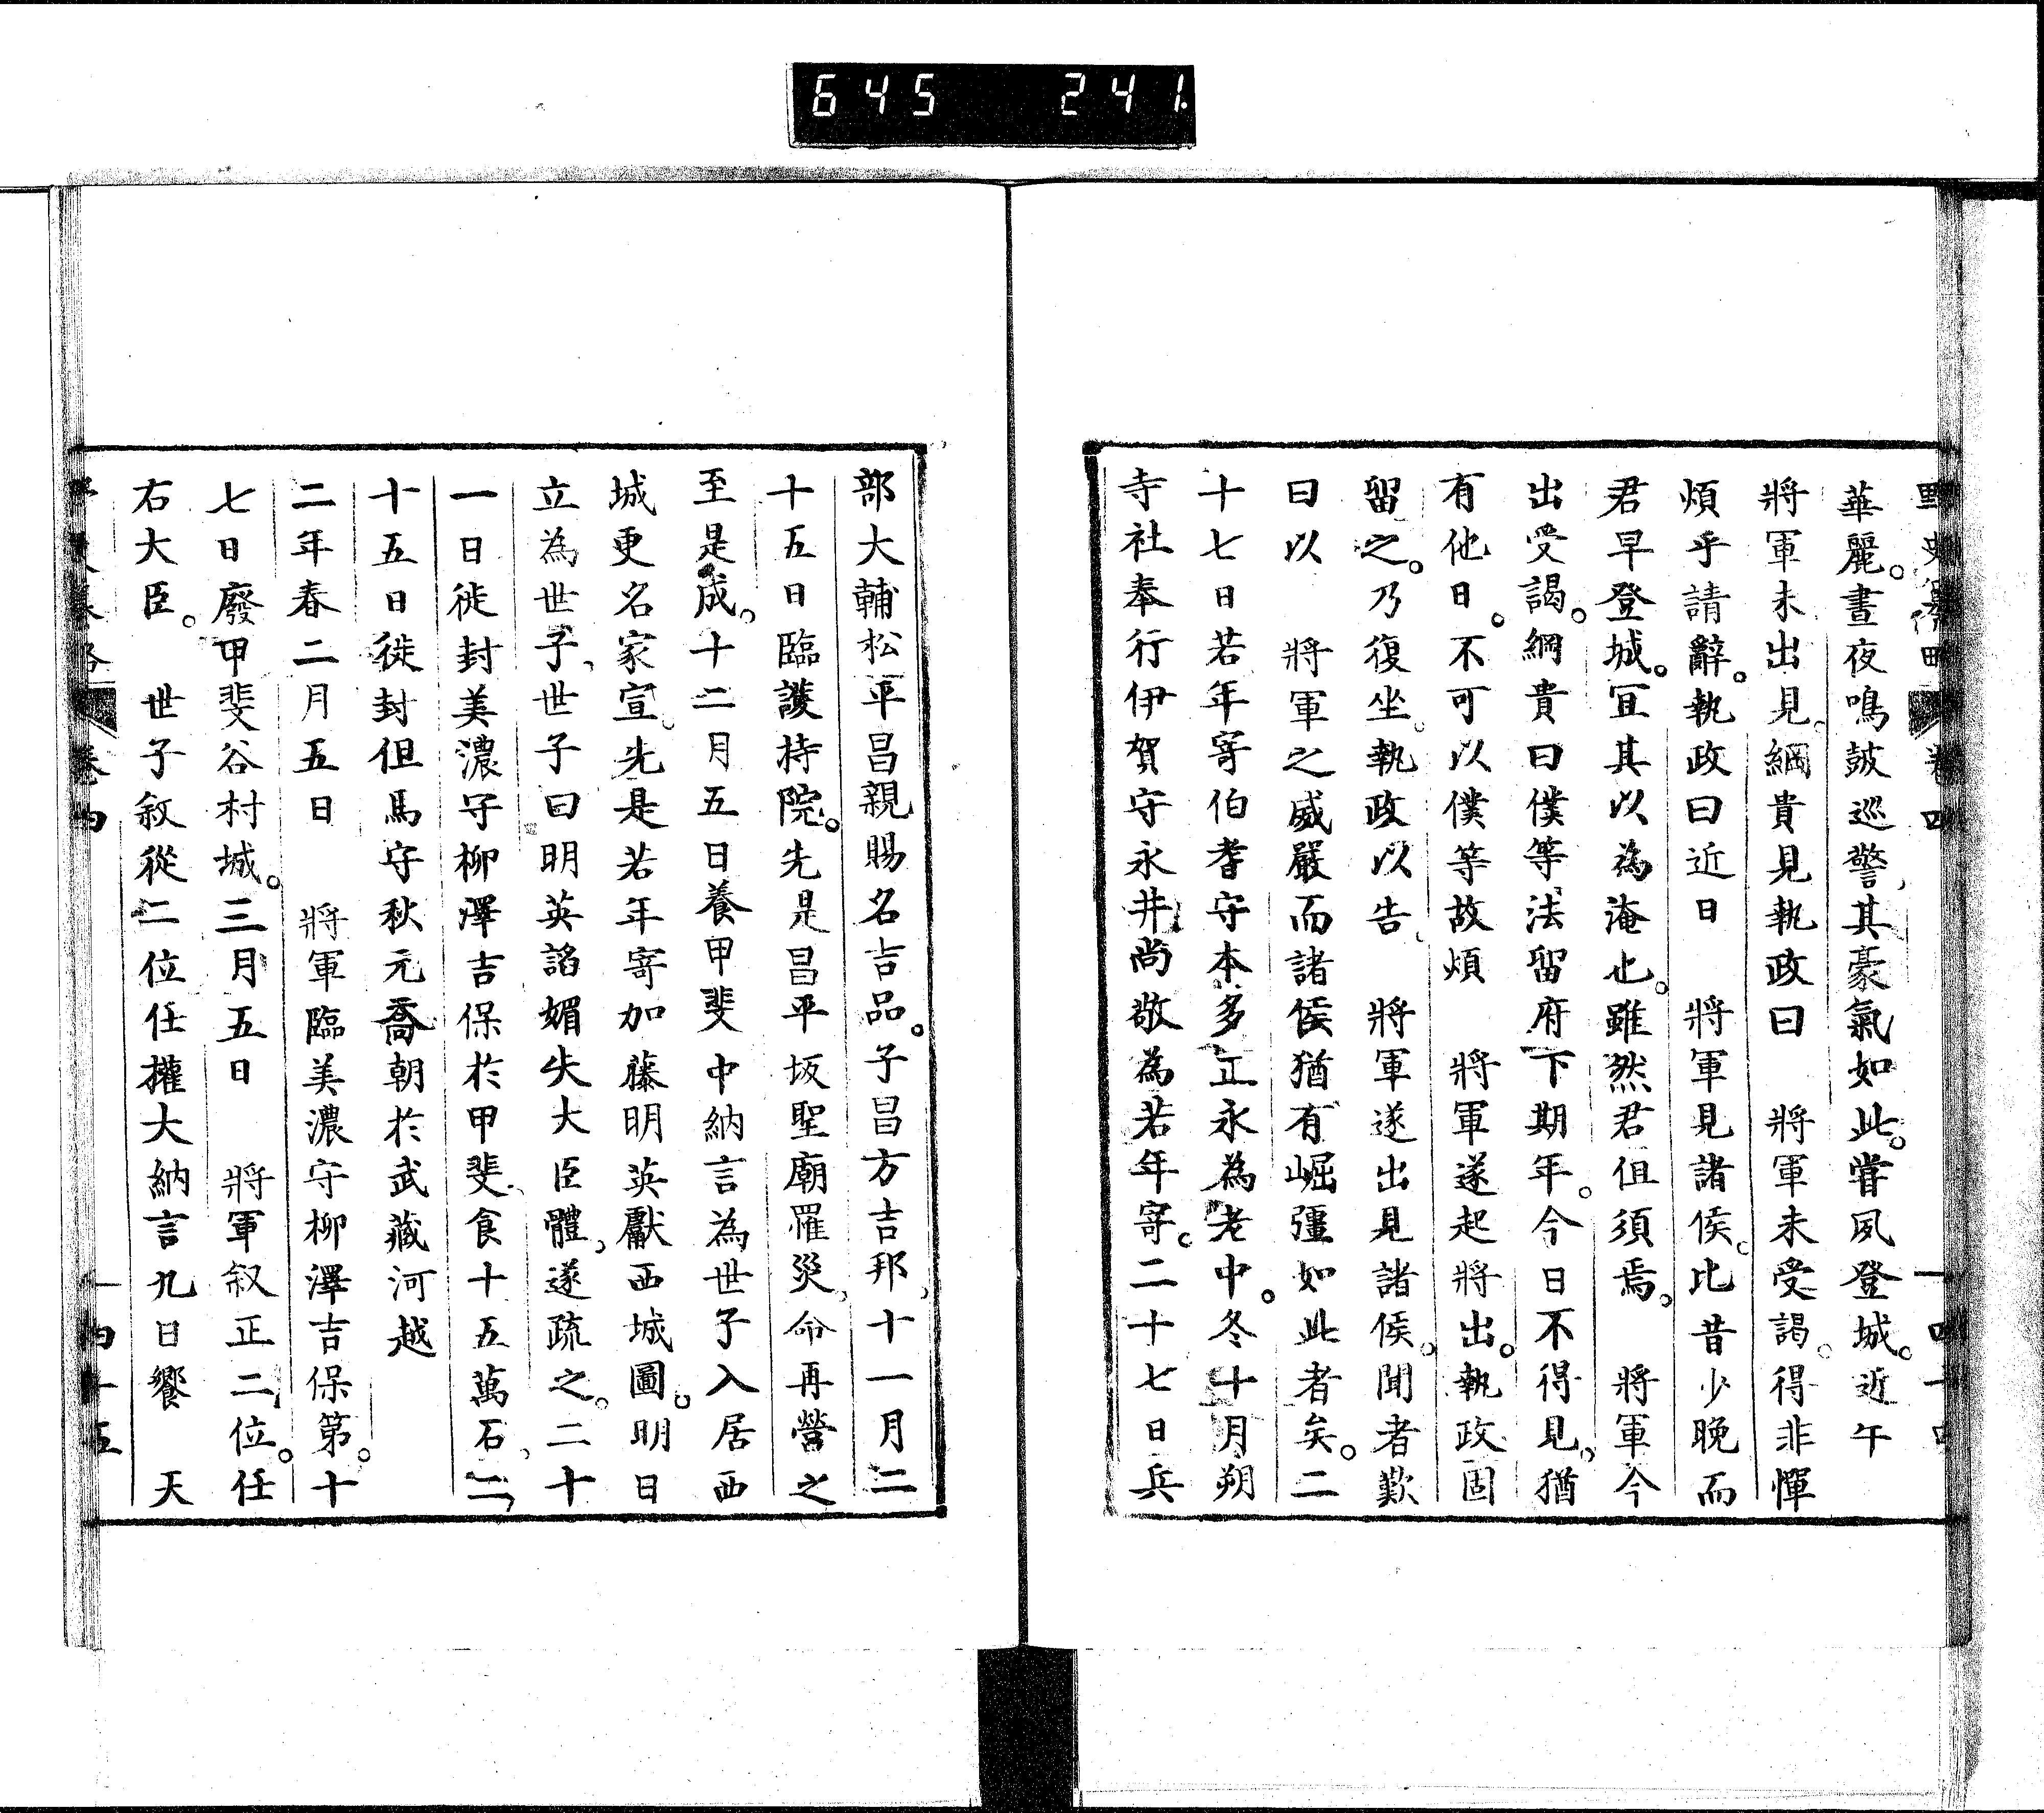 645 241
華麗。晝夜鳴鼓巡警、其豪氣如此。嘗夙登城。近午
將軍未出見。綱貴見執政曰　將軍未受謁。得非憚
煩乎請辭。執政曰近日　將軍見諸侯。比昔少晚而
君早登城。宜其以為淹也。雖然君但須焉。　將軍今
出受謁。綱貴曰僕等法留府下期年。今日不得見、猶
有他日。不可以僕等故煩　將軍遂起將出。執政固
留之。乃復坐。執政以告　將軍遂出見諸侯。聞者歎
曰以　將軍之威嚴而諸侯猶有崛彊如此者矣。二
十七日若年寄伯耆守本多正永為老中。冬十月朔
寺社奉行伊賀守永井尚敬為若年寄。二十七日兵
部大輔松平昌親賜名吉品。子昌方吉邦、十一月二
十五日臨護持院。先是昌平坂聖廟罹災、命再營之
至是成。十二月五日養甲斐中納言為世子入居西
城更名家宣。先是若年寄加藤明英獻西城圖。明日
立為世子、世子曰明英諂媚失大臣體、遂疏之。二十
一日徙封美濃守柳澤吉保於甲斐、食十五萬石、二
十五日徙封但馬守秋元喬朝於武藏河越
二年春二月五日　將軍臨美濃守柳澤吉保第。十
七日廢甲斐谷村城。三月五日　將軍叙正二位。任
右大臣。　世子叙從二位任權大納言九日饗　天